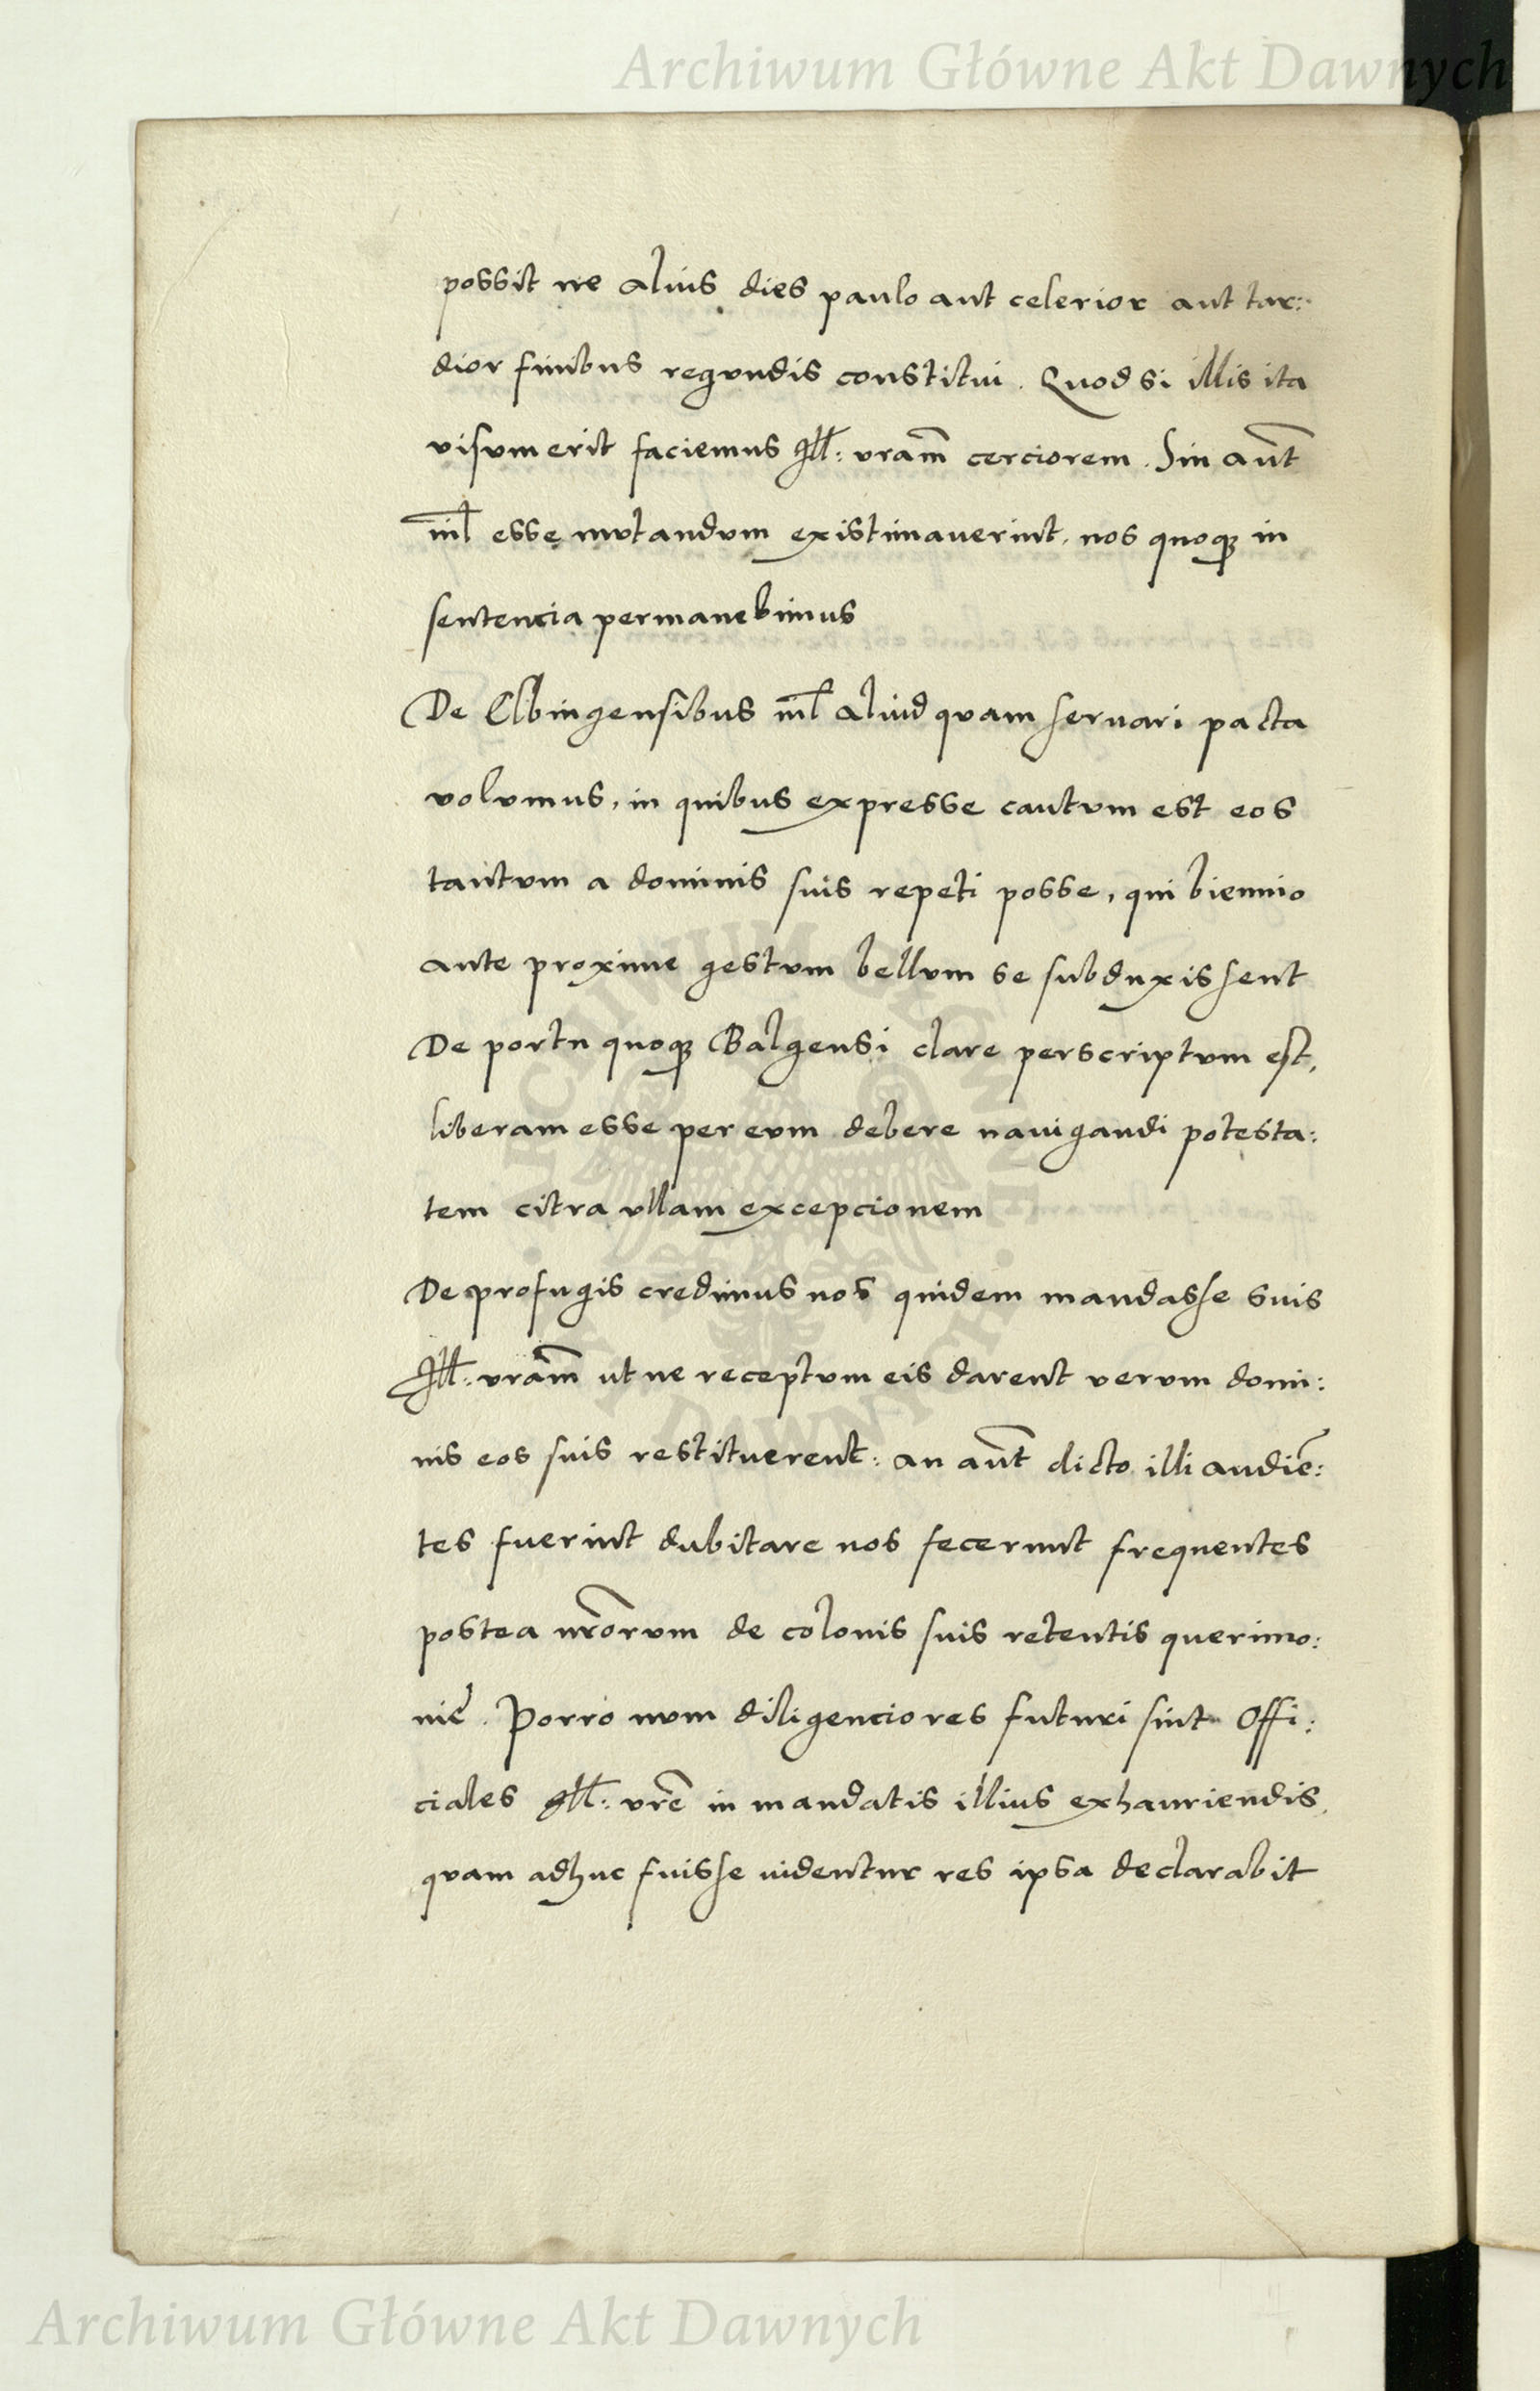 Archiwum Główne Akt Dawnych
possit ne alius dies paulo aut celerior aut tar:
dior finibus regundis constitui. Quod si illis ita
visum erit faciemus Ill: vram̅ cerciorem. Sin aut̅
nil̅ esse mutandum existimauerint, nos quoqꝫ in
sentencia permanebimus
De Elbingensibus nil̅ aliud quam seruari pacta
volumus, in quibus expresse cautum est eos
tantum a dominis suis repeti posse, qui biennio
ante proxime gestum bellum se subduxissent
De portu quoqꝫ Balgensi clare perscriptum est,
liberam esse per eum debere nauigandi potesta:
tem citra ullam excepcionem
De profugis credimus nos quidem mandasse suis
Ill: vram̅ ut ne receptum eis darent verum domi:
nis eos suis restituerent: an aut̅ dicto illi audie̅:
tes fuerint dubitare nos fecerunt frequentes
postea nr̅orum de colonis suis retentis querimo:
nie. Porro num diligenciores futuri sint Offi:
ciales Ill: vre̅ in mandatis illius exhauriendis,
quam adhuc fuisse uidentur res ipsa declarabit
ARCHIWUM GŁÓWNE AKT DAWNYCH
Archiwum Główne Akt Dawnych